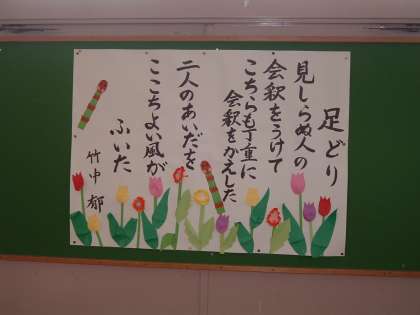 足どり
見しらぬ人の
会釈をうけて
こちらも丁重に
会釈をかえした
二人のあいだを
ここちよい風が
ふいた
竹中 郁